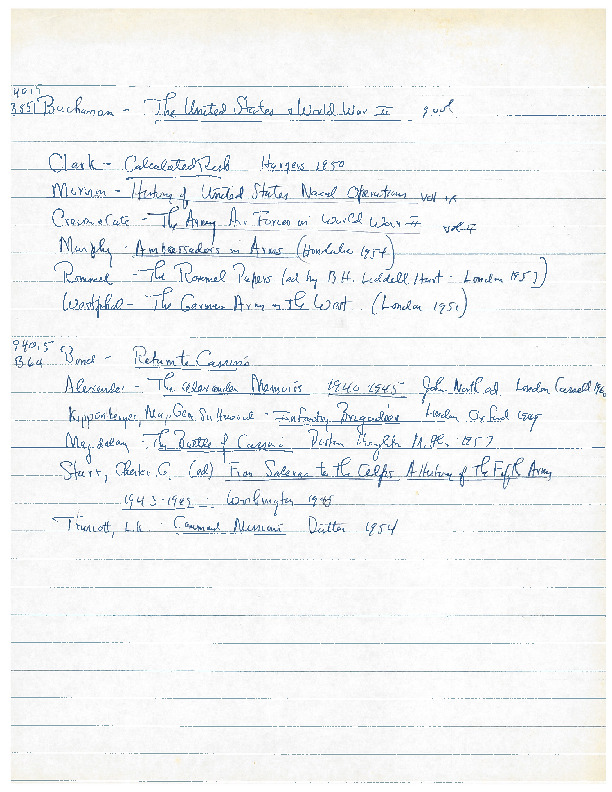 4015
B851 Buchanan - The United States & World War II good
Clark - Calculated Risk Harpers 1950
Morison - History of United States Naval Operations Vol IX
Craven & Cate - The Army Air Forces in World War II vol
Murphy - Ambassadors in Arms (Honolulu 1954)
Rommel - The Rommel Papers (ed by B.H. Liddell Hart - London 1953)
Westphal - The German Army in the West. (London 1951)
940.5
B64 Bond - Return to Cassino
Alexander - The Alexander Memoirs 1940-1945 John North ed. London Cassell
Kippenberger, Maj. Gen. Sir Howard - Infantry Brigadier London Oxford 1949
Majdalany - The Battle of Cassino Boston Houghton Mifflin 1957
Starr, Chester G. (ed) From Salerno to the Alps A History of the Fifth Army
1943-1945 Washington 1948
Truscott, L.K. Command Missions Dutton 1954